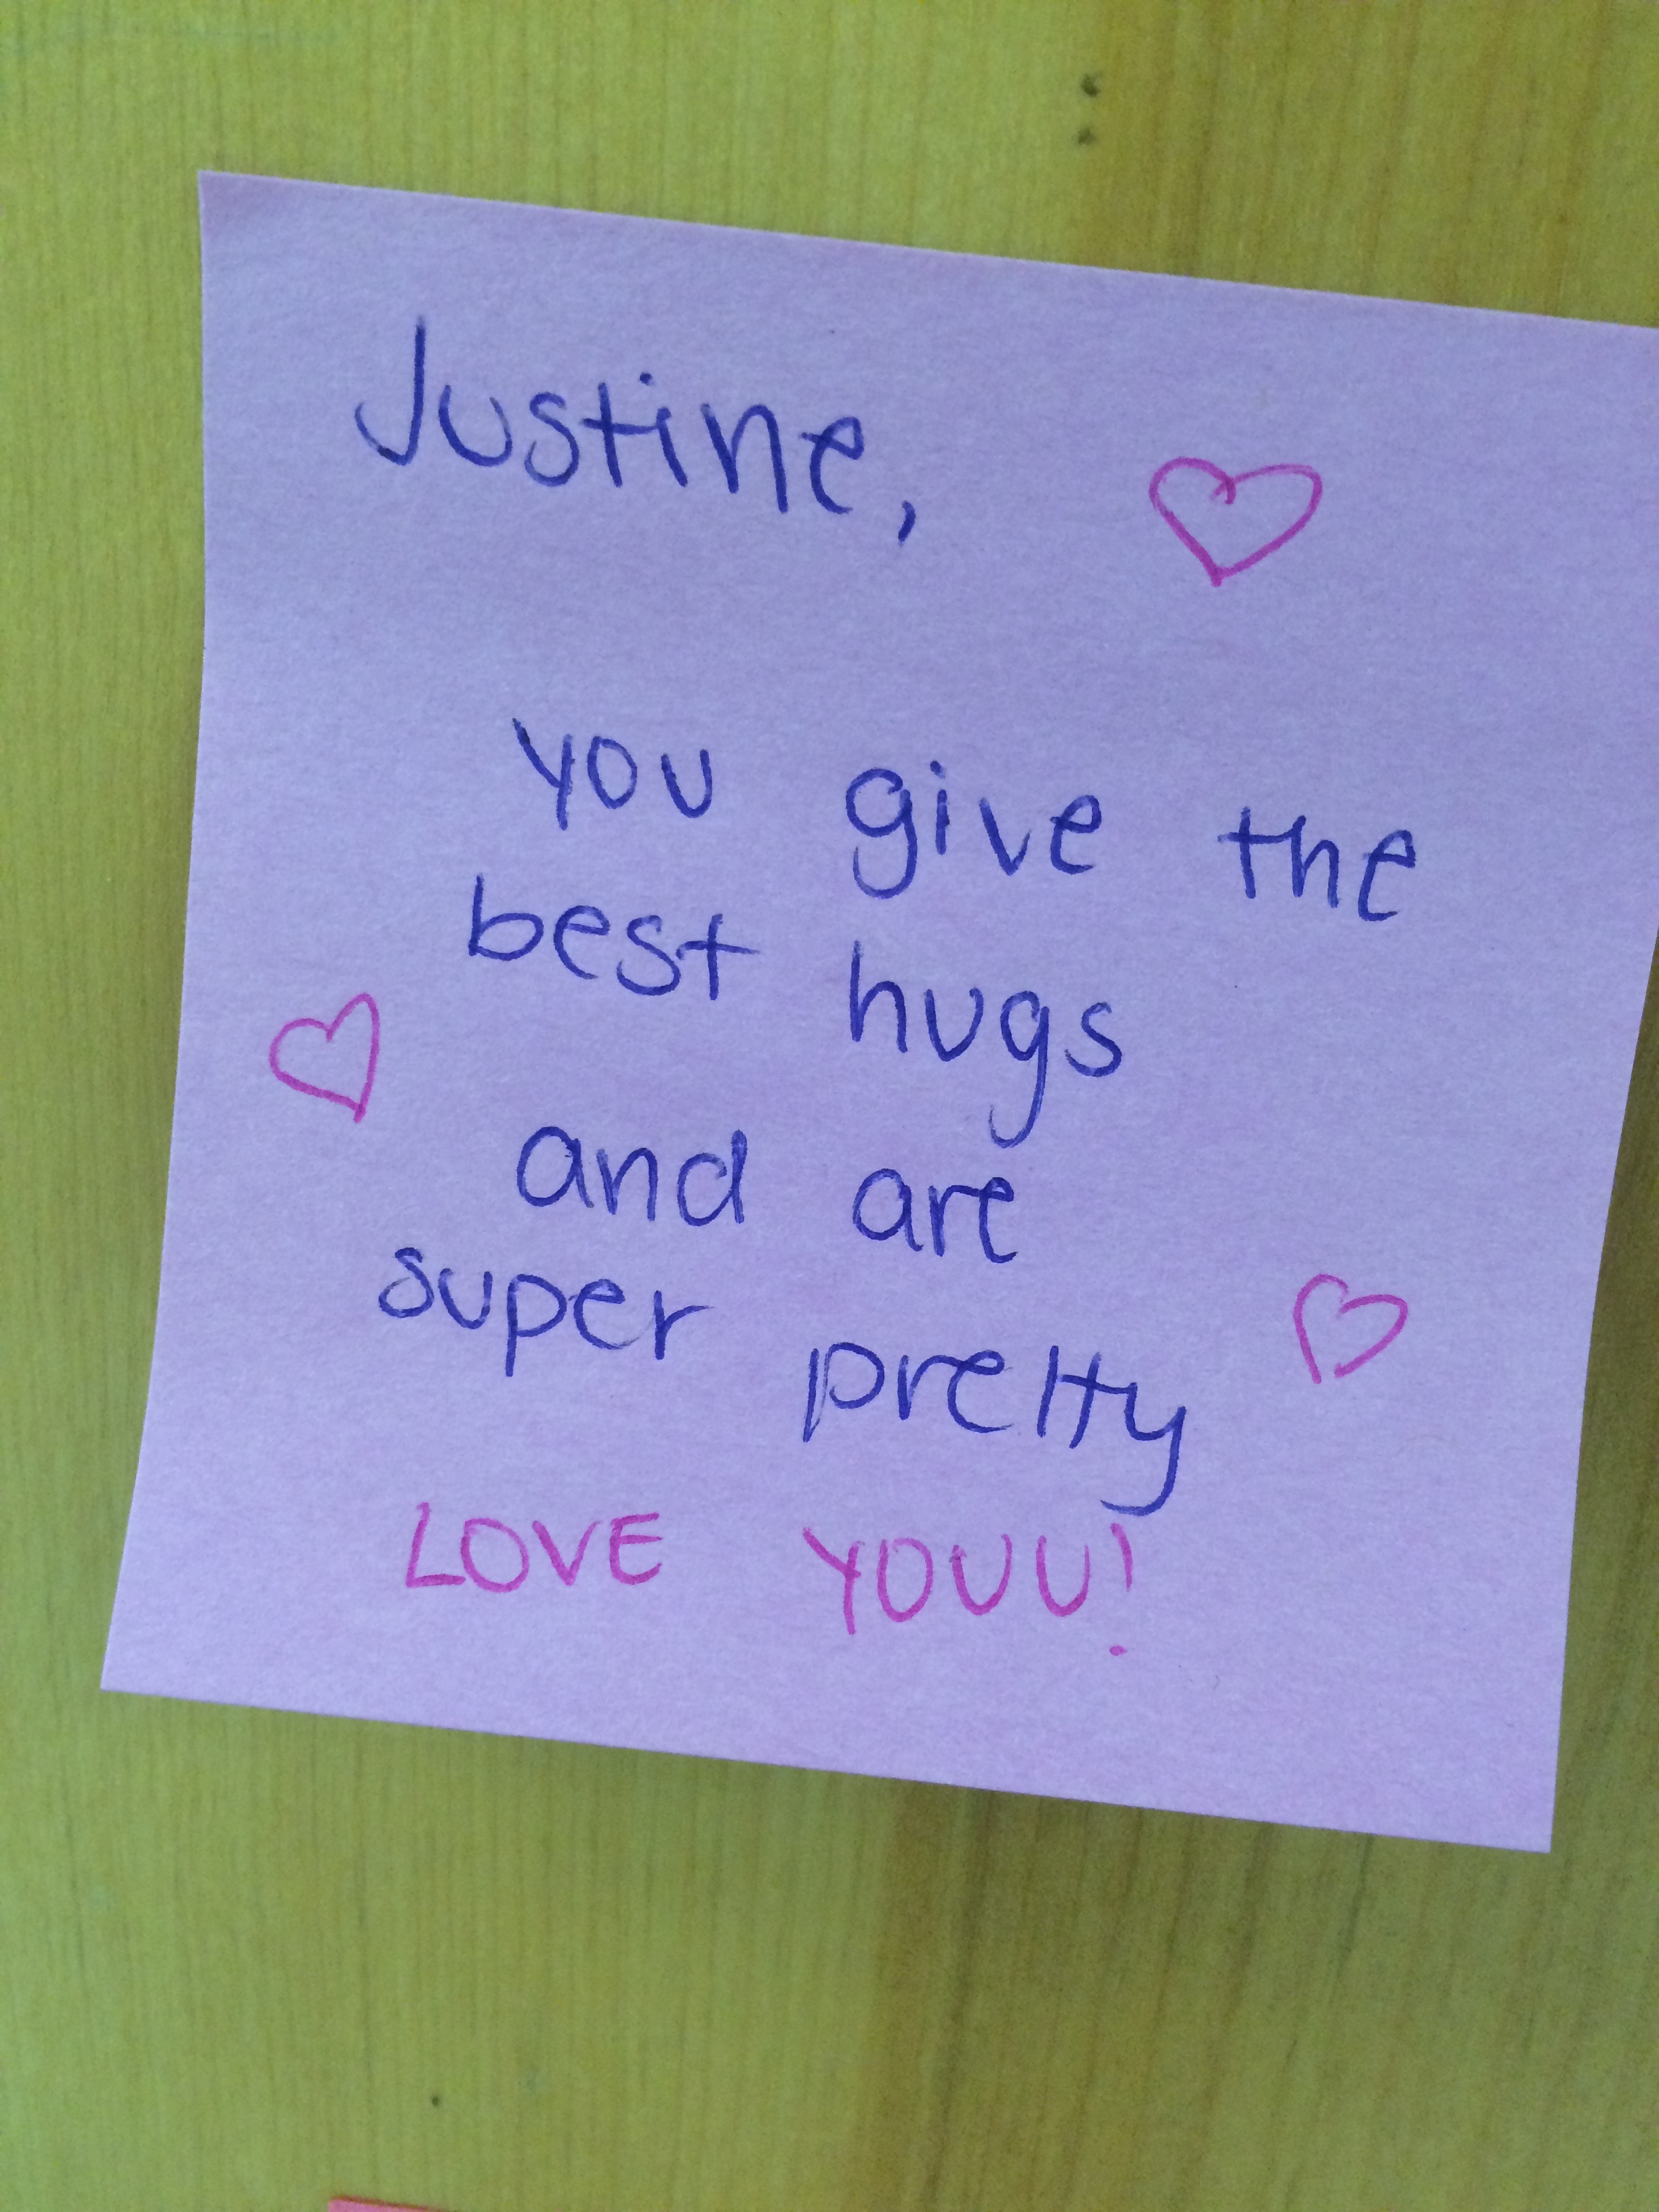 Justine,
you give the
best hugs
and are
super pretty
LOVE YOUU!